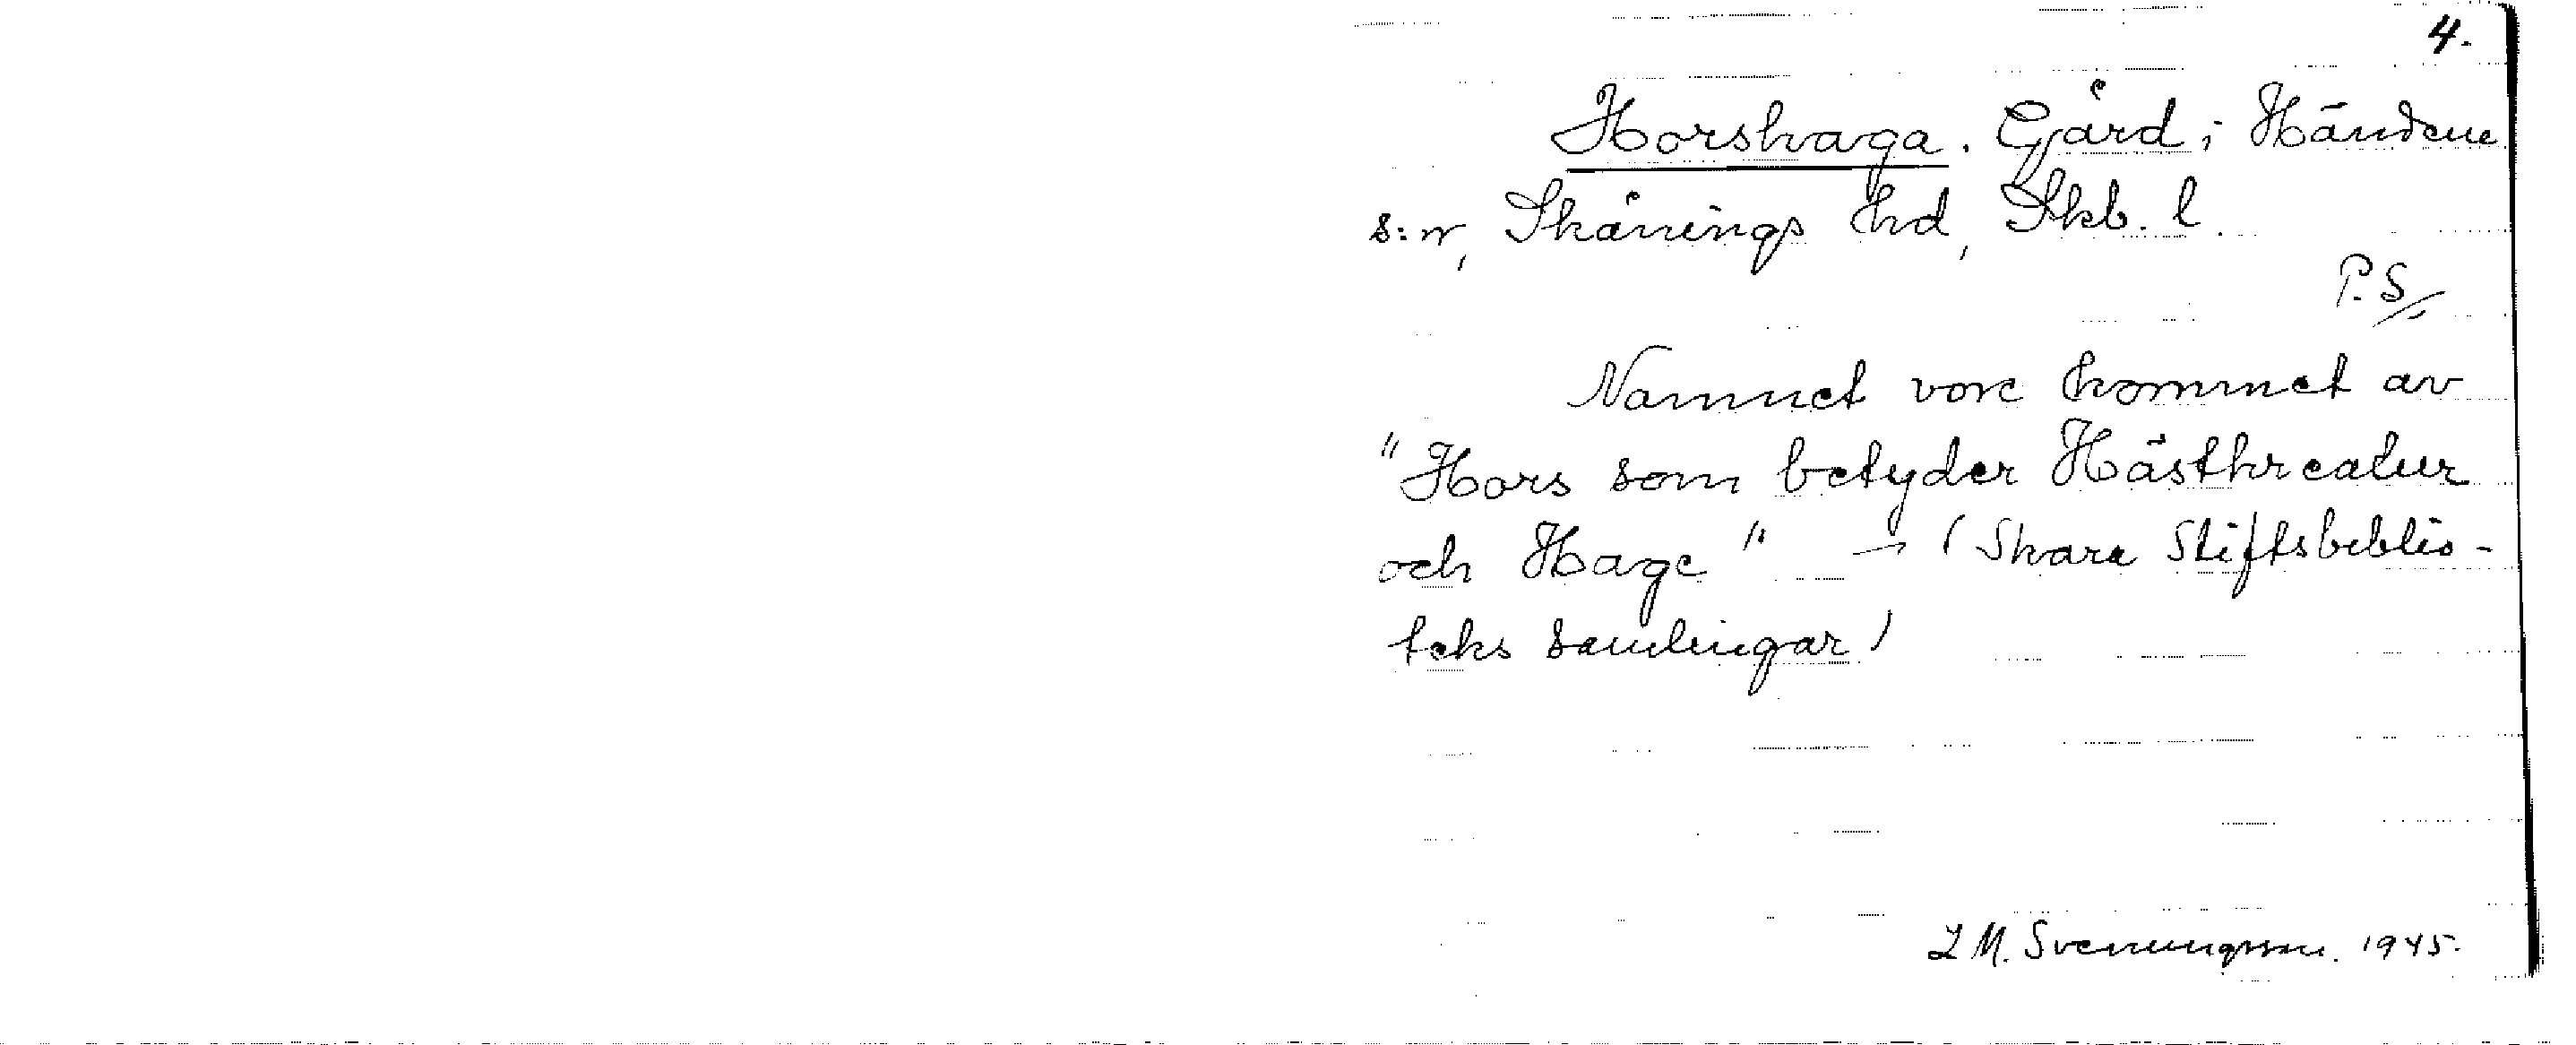 4.
Horshaga. Gård i Händene
s:n, Skånings hd, Skb. l.
P.S/.
Namnet vore kommet av
"Hors som betyder Hästkreatur
och Hage" — (Skara Stiftsbiblio-
teks samlingar)
L M. Svenungsson. 1945.